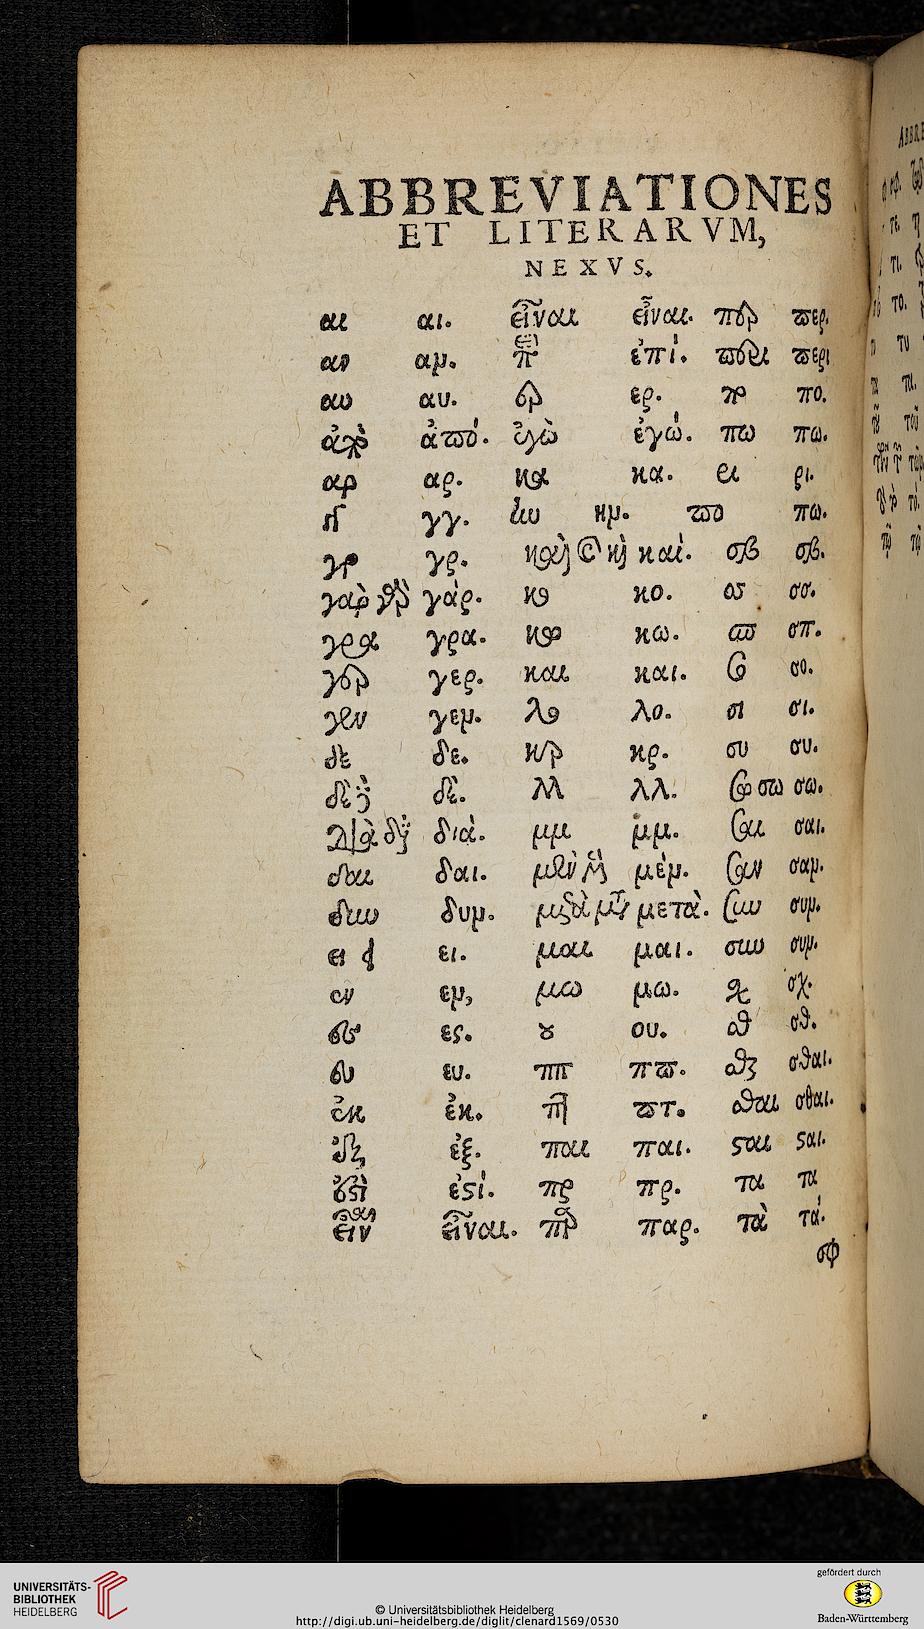 ABBREVIATIONES
ET LITERARVM,
NEXVS.
αι αι. εἶναι εἶναι. περ ϖερ.
αν αμ. ἐπί ἐπί. ϖερι ϖερι
αυ αυ. ερ ερ. πο πο.
ἀπὸ ἀϖό. ἐγὼ ἐγώ. πω πω.
αρ αρ. κα κα. ρι ρι.
γγ γγ. ημ. ϖο πω.
γρ γρ. καὶ καί. σβ σβ.
γὰρ γὰρ γάρ. κο κο. σσ σσ.
γρα γρα. κω κω. σπ σπ.
γερ γερ. και και. σο σο.
γεν γεμ. λο λο. σι σι.
δε δε. κρ κρ. συ συ.
δὲ δὲ. λλ λλ. σω σω σω.
διὰ διά. μμ μμ. σαι σαι.
δαι δαι. μὲν μέμ. σαν σαμ.
δυν δυμ. μετὰ μετὰ. συν συμ.
ει ει. μαι μαι. συν συμ.
εν εμ, μω μω. σχ σχ.
ες ες. ȣ ου. σθ σθ.
ευ ευ. ππ πϖ. σθαι σθαι.
ἐκ ἐκ. πτ ϖτ. σθαι σθαι.
ἐξ ἐξ. παι παι. ϛαι ϛαι.
ἐϛὶ ἐϛί. πρ πρ. τα τα
εἶναι εἶναι. παρ παρ. τὰ τά.
σφ
ABBRE
τε. η
τι.
το.
τυ
UNIVERSITÄTS-
BIBLIOTHEK
HEIDELBERG
© Universitätsbibliothek Heidelberg
http://digi.ub.uni-heidelberg.de/diglit/clenard1569/0530
gefördert durch
Baden-Württemberg